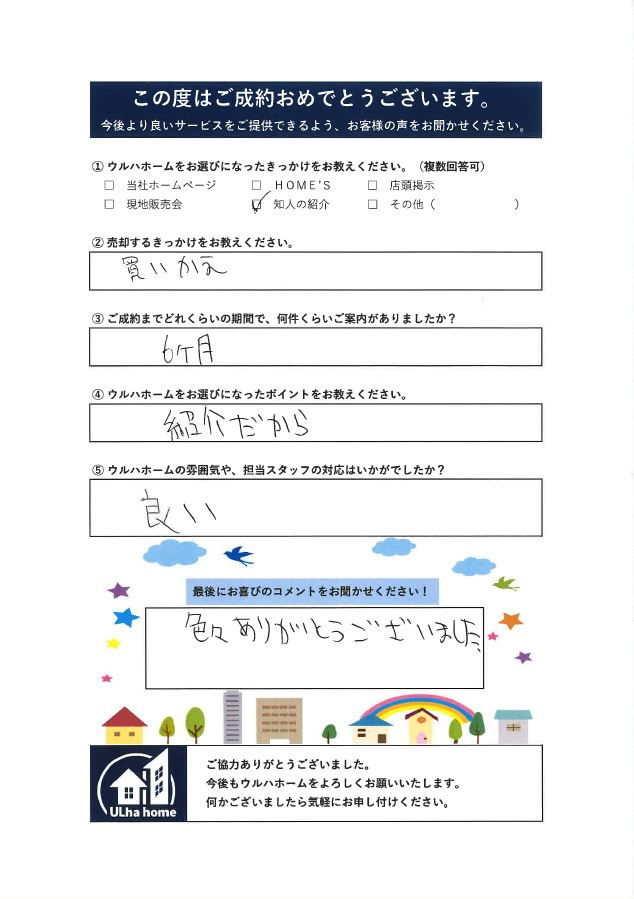 この度はご成約おめでとうございます。
今後より良いサービスをご提供できるよう、お客様の声をお聞かせください。
① ウルハホームをお選びになったきっかけをお教えください。（複数回答可）
□ 当社ホームページ □ HOME'S □ 店頭掲示
□ 現地販売会 ☑ 知人の紹介 □ その他（ ）
② 売却するきっかけをお教えください。
買いかえ
③ ご成約までどれくらいの期間で、何件くらいご案内がありましたか？
6ヶ月
④ ウルハホームをお選びになったポイントをお教えください。
紹介だから
⑤ ウルハホームの雰囲気や、担当スタッフの対応はいかがでしたか？
良い
最後にお喜びのコメントをお聞かせください！
色々ありがとうございました、
ご協力ありがとうございました。
今後もウルハホームをよろしくお願いいたします。
何かございましたら気軽にお申し付けください。
ULha home